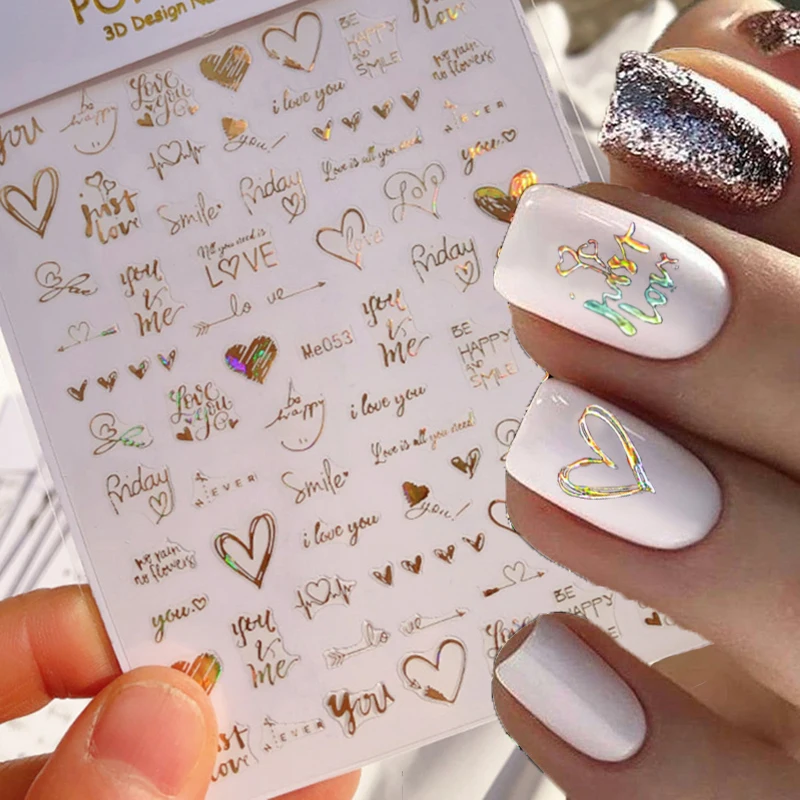 3D Design Na
just
love
you
be
happy
Love
you
i love you
BE
HAPPY
AND
SMILE
no rain
no flowers
you!
NEVER
Love is all you need
you
just
love
Smile
Friday
Love
All you need is
LOVE
love
Friday
you
&
me
lo ve
Me053
you
&
me
BE
HAPPY
AND
SMILE
Love
you
be
happy
i love you
Love is all you need
Friday
NEVER
Smile
you!
i love you
no rain
no flowers
you
you
&
me
lo ve
BE
HAPPY
just
love
NEVER
you
just
love